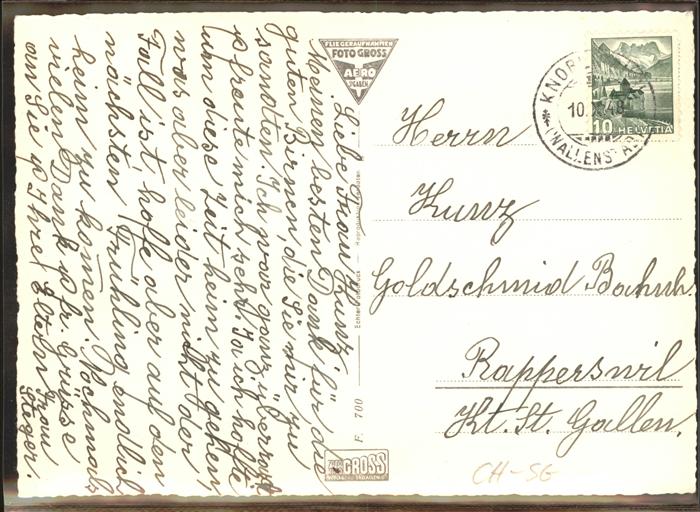 Liebe Frau Kunz.
Meinen besten Dank für die
guten Birnen die Sie mir zu
sandten. Ich war ganz überrascht
freute mich sehr. Ja ich hoffte
um diese Zeit heim zu gehen,
was aber leider nicht der
Fall ist, hoffe aber auf den
nächsten Frühling endlich
heim zu kom̄en. Nochmals
vielen Dank & fr. Grüsse
an Sie & Ihre Eltern Frau
Steger.
FLIEGERAUFNAHMEN
FOTO GROSS
AERO
ST.GALLEN
F. 700
GROSS
KNOR
10. X. 48
(WALLENST
10 HELVETIA
Herrn
Kunz
Goldschmid Bahnh.
Rapperswil
Kt. St. Gallen.
CH-SG